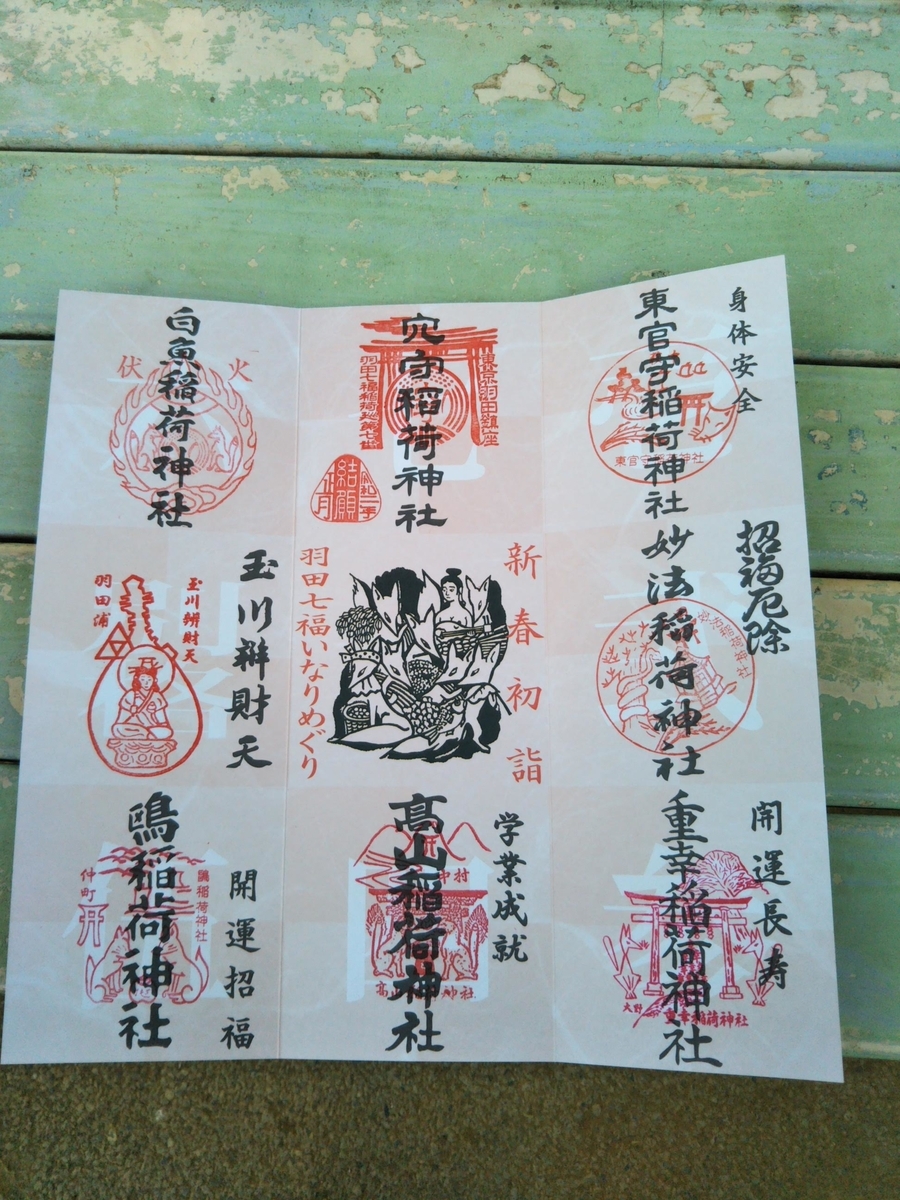 身体安全
東官守稲荷神社
東官守稲荷神社
招福厄除
妙法稲荷神社
開運長寿
重幸稲荷神社
大野
重幸稲荷神社
穴守稲荷神社
東京羽田鎮座
羽田七福稲荷巡第七社
令和二年
結願
正月
新春初詣
羽田七福いなりめぐり
学業成就
高山稲荷神社
中村
高山稲荷神社
白魚稲荷神社
火
伏
玉川辨財天
玉川辨財天
羽田浦
開運招福
鴎稲荷神社
鴎稲荷神社
仲町